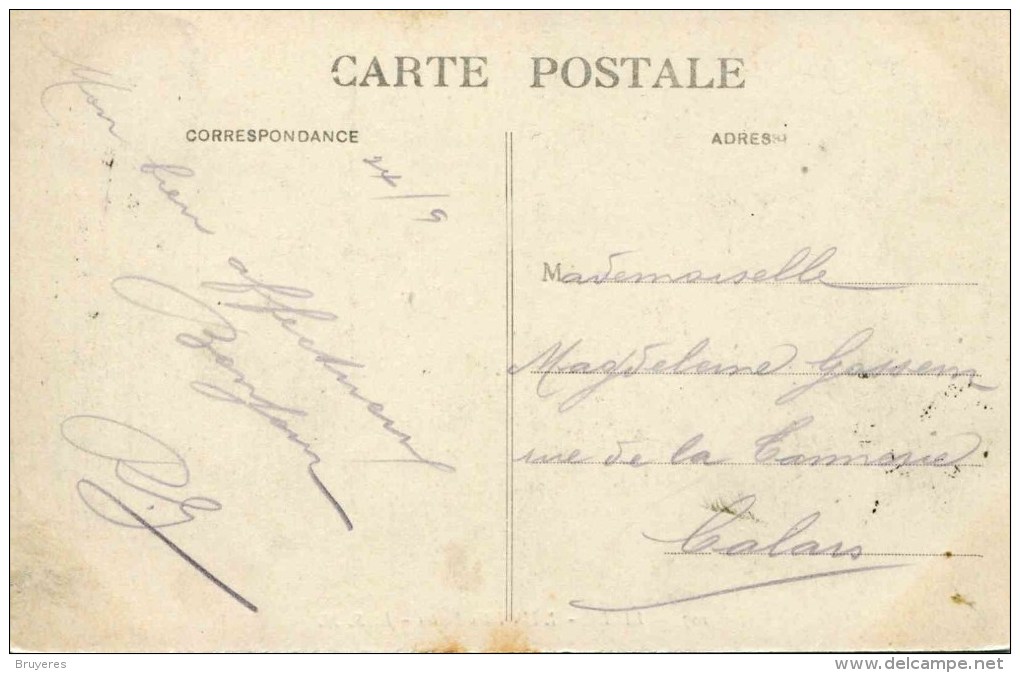 CARTE POSTALE
CORRESPONDANCE
24/9
Mon
bien
affectueux
Bonjour
ADRESSE
Mademoiselle
Magdeleine
rue de la Tannerie
Calais
Bruyeres
www.delcampe.net